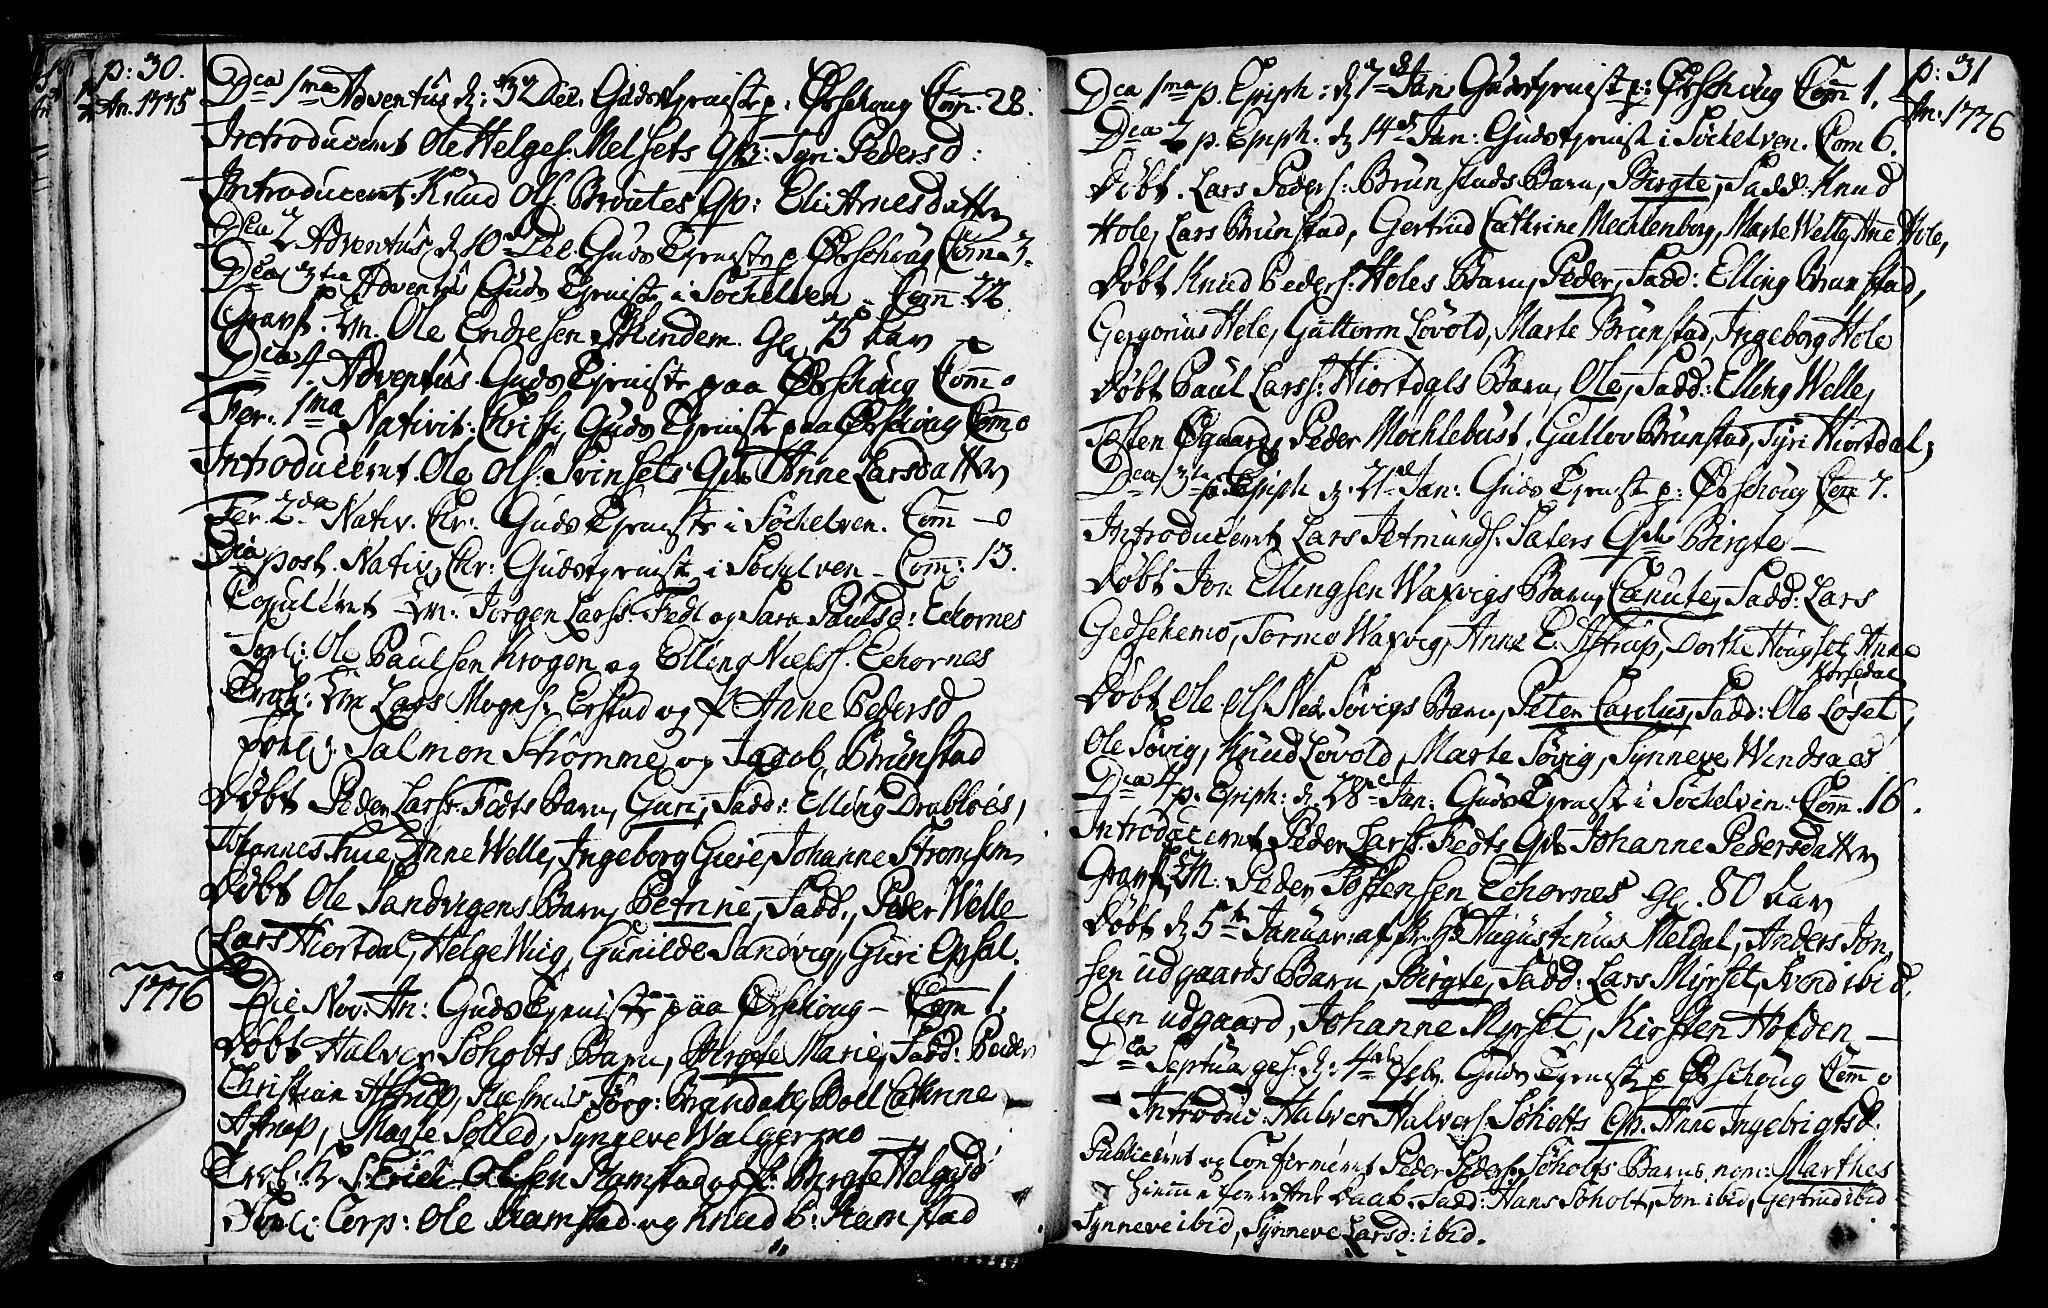 p: 30.
An. 1775
Dca 1ma Adventus d: 3 Dec. Gudstjenist p: Ørschoug Com. 28.
Introduceret Ole Helges: Melsets Qv: Syri Pedersd:
Introduceret Knud Ols: Broutes Qv: Eli Arnesdatter
Dca 2 Adventus d 10 Dec. Guds Tjenist p Ørschoug Comm 3.
Dca 3tia Adventu Guds Tjenist i Søchelven - Com. 22
Gravf. Ole Endresen Skindem. Gl. 75 aar
Dca 4. Adventus Guds Tjenist paa Ørschoug Comm 0
Fer: 1ma Nativit: Christi, Guds Tjenist paa Ørschoug Comm 0
Introduceret Ole Ols: Svinsets Qv Anne Larsdatter
Fer. 2da Nativ. Chr: Guds Tjenist i Søchelven. Com - 0
Dca post. Nativ. Chr: Gudstjenist i Søchelven - Com: 13.
Copuleret Jørgen Larss: Fedt og Sara Paulsd: Echornes
Forl: Ole Paulsen Krogen og Elling Nielss. Echornes
Lars Mogns: Erstad og P Anne Pedersd
Forl: Salmon Strømme og Jacob Brunstad
Døbt Peder Larss: Fedts Barn, Guri, Fadd: Elling Drabløes,
Johannes Hue, Anne Welle, Ingeborg Giere, Johanne Stromsem
Døbt Ole Sandvigens Barn, Petrine, Fadd., Peder Welle
Lars Hiortdal, Helge Wiig, Gunilde Sandvig, Guri Opsal.
1776
Die Nov: An: Guds Tjenist paa Ørschoug - Com 1.
Døbt Halver Søholts Barn, Birgte Marie, Fadd: Peder
Christian Astrup, Rasmus Jørg: Brandal, Boel Cathrine
Astrup, Magte Solled, Synneve Walgermo
Olsen Ramstad og P: Birgte Helgesd
Forl: Corp: Ole Ramstad og Knud P: Ramstad
p: 31
An: 1776
Dca 1ma p. Epiph: d 7de Jan Gudstjenist p: Ørschoug Com 1.
Dca 2 p. Epiph. d 14de Jan: Gudstjenist i Søchelven. Com 6.
Døbt. Lars Peders: Brunstads Barn, Birgte, Fadd: Knud
Hole, Lars Brunstad, Gertrud Cathrine Mechlenborg, Marte Welle, Ane Hole,
Døbt Knud Peders: Holes Barn, Peder, Fadd: Elling Brunstad,
Gergonius Hole, Guttorm Løvold, Marte Brunstad, Ingeborg Hole
Døbt Paul Larss: Hiortdals Barn, Ole, Fadd: Elling Welle,
Tosten Øgaard, Peder Mochlebust, Gullov Brunstad, Syri Hiortdal,
Dca 3tia p Epiph d. 21de Jan: Guds Tjenist p: Ørschoug Com 7.
Introduceret Lars Petmunds: Sæters Qv Birgte -
Døbt Jon Ellingsen Waxvigs Barn, Canute, Fadd: Lars
Gedsekemo, Tormo Waxvig, Anne E. Astrup, Dorthe Hougset, Anne
Korsedal
Døbt Ole Ols: Nedr Søvigs Barn, Peter Carolus, Fadd: Ole Løset,
Ole Søvig, Knud Løvold, Marte Søvig, Synneve Windsaas
Dca 4 p. Epiph: d. 28de Jan: Guds Tjenist i Søchelven: Com. 16.
Introduceret Peder Larss: Fedts Qv Johanne Pedersdatter
Gravf, Peder Tostensen Echornes gl. 80 aar
Døbt d 5te Januar: af Augustinus Meldal, Anders Jon,
sen udgaards Barn, Birgte, Fadd: Lars Myrset, Svend ibid.
Elen udgaard, Johanne Myrset, Kirsten Hofden -
Dca Septuages: d: 4de Febr. Guds Tjenist p Ørschoug Com 0
Introduc: Halver Halvers: Søholts Qv. Anne Ingebrigtsd.
Publiceret og Confirmeret Peder Peders: Søholts Barns nom: Marthes
Hiemme Daab. Fadd: Hans Søholt, Jon ibid, Gertrud ibid
Synneve ibid, Synneve Larsd: ibid.